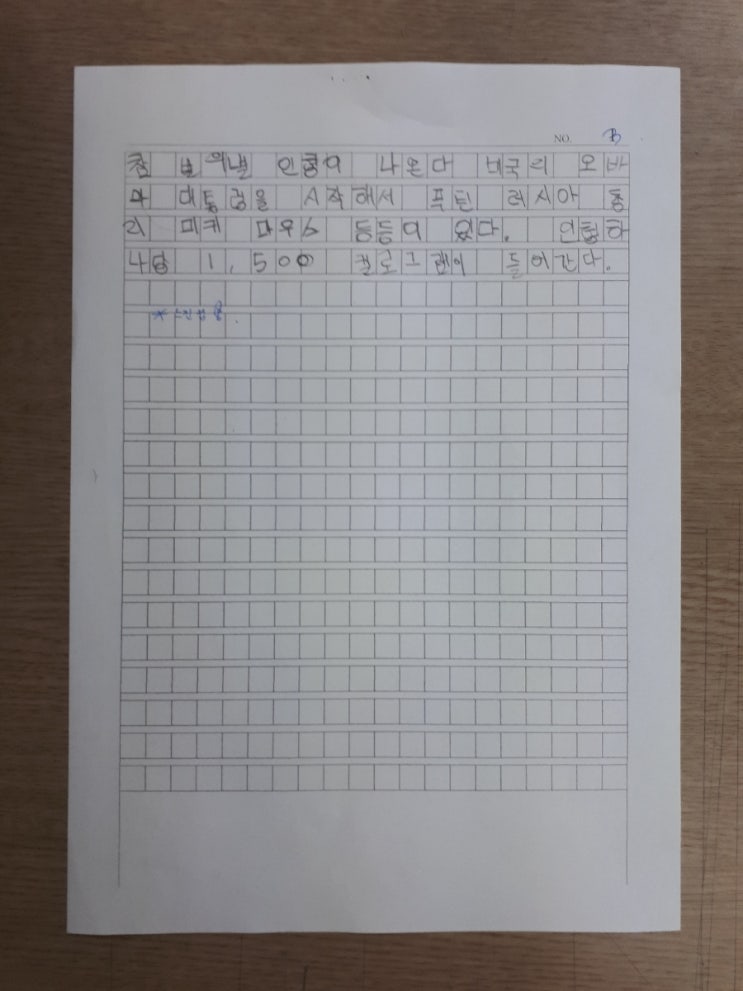 NO. B
참 보낼 인형이 나온다 미국의 오바
마 대통령을 시작해서 푸틴 러시아 통
리 미키 마우스 등등이 있다. 인형하
나당 1,500 킬로그램이 들어간다.